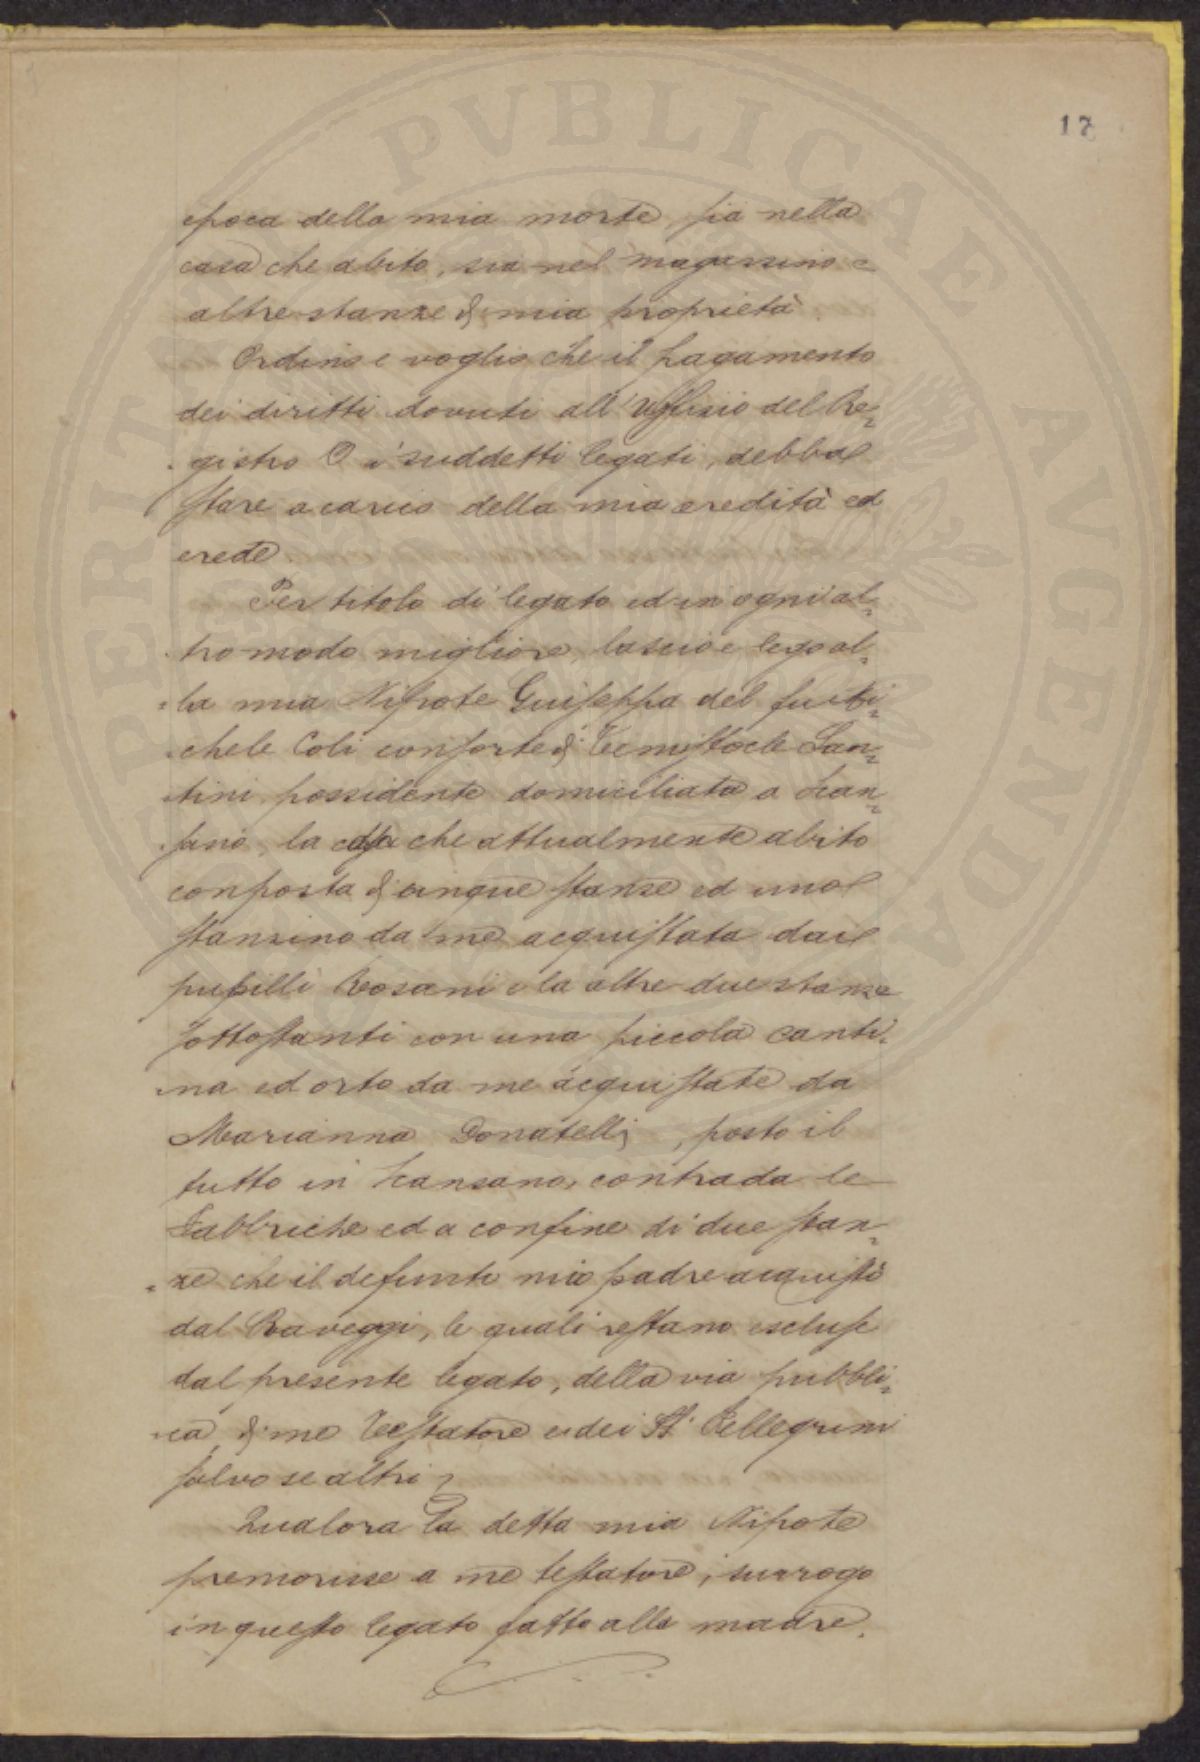 17
epoca della mia morte sia nella
casa che abito, sia nel magazzino e
altre stanze di mia proprietà.
Ordino e voglio che il pagamento
dei diritti dovuti all'Uffizio del Re=
gistro i suddetti legati, debba
stare a carico della mia eredità ed
erede.
Per titolo di legato ed in ogni al=
tro modo migliore, lascio e lego al=
=la mia Nipote Guiseppa del fu Mi=
chele Coli consorte di Temistocle San=
tini possidente domiciliata a Scan=
sano, la casa che attualmente abito
composta di cinque stanze ed uno
stanzino da me acquistata dai
pupilli Rosani e la altre due stanze
sottostanti con una piccola canti=
=na ed orto da me acquistate da
Marianna Donatelli, posto il
tutto in Scansano, contrada le
Fabbriche ed a confine di due stan=
=ze che il defunto mio padre acquistò
dal Raveggi, le quali restano escluse
dal presente legato, della via pubbli=
=ca, di me Testatore e dei Pellegrini
salvo se altri
Qualora la detta mia Nipote
premorisse a me testatore, surrogo
in questo legato fatto alla madre.
PERITAT PVBLICAE AVGENDAE